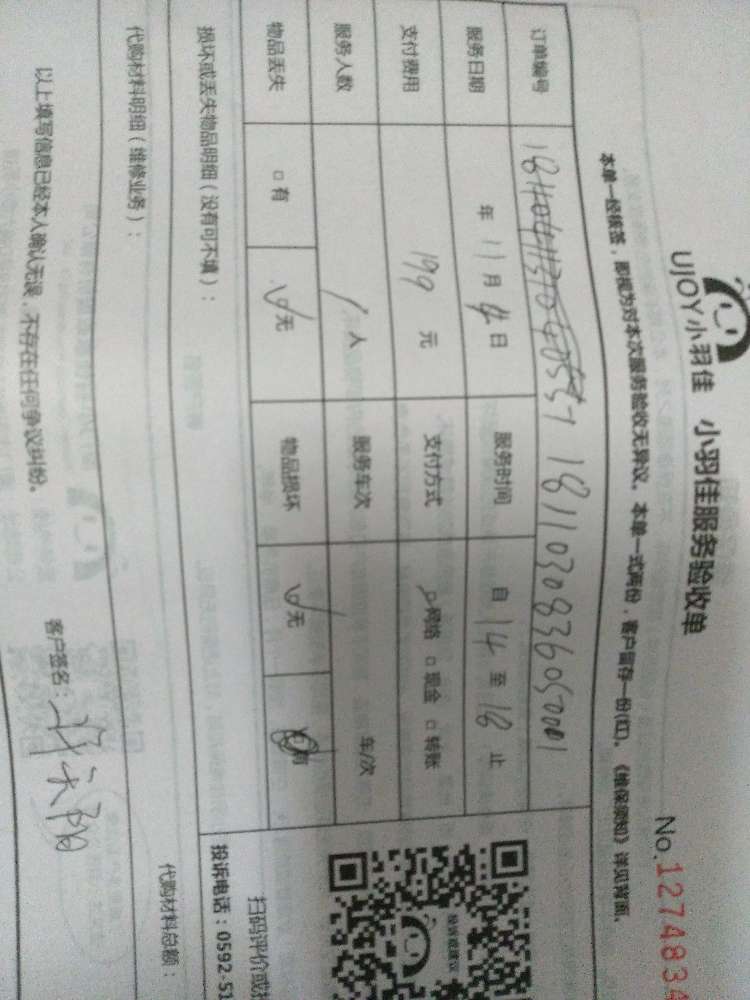 UJOY小羽佳 小羽佳服务验收单
No.1274834
本单一经核签，即视为对本次服务验收无异议。本单一式两份，客户留存一份(红)。《维保须知》详见背面。
订单编号 18110308360500001
服务日期 年 11 月 4 日 服务时间 自 14 至 18 止
支付费用 199 元 支付方式 ☑网络 □现金 □转账
服务人数 1 人 服务车次 车/次
物品丢失 □有 ☑无 物品损坏 ☑无 有
损坏或丢失物品明细（没有可不填）：
代购材料明细（维修业务）：
代购材料总额：
以上填写信息已经本人确认无误，不存在任何争议纠纷。 客户签名：
投诉建议
扫码评价或
投诉电话：0592-51